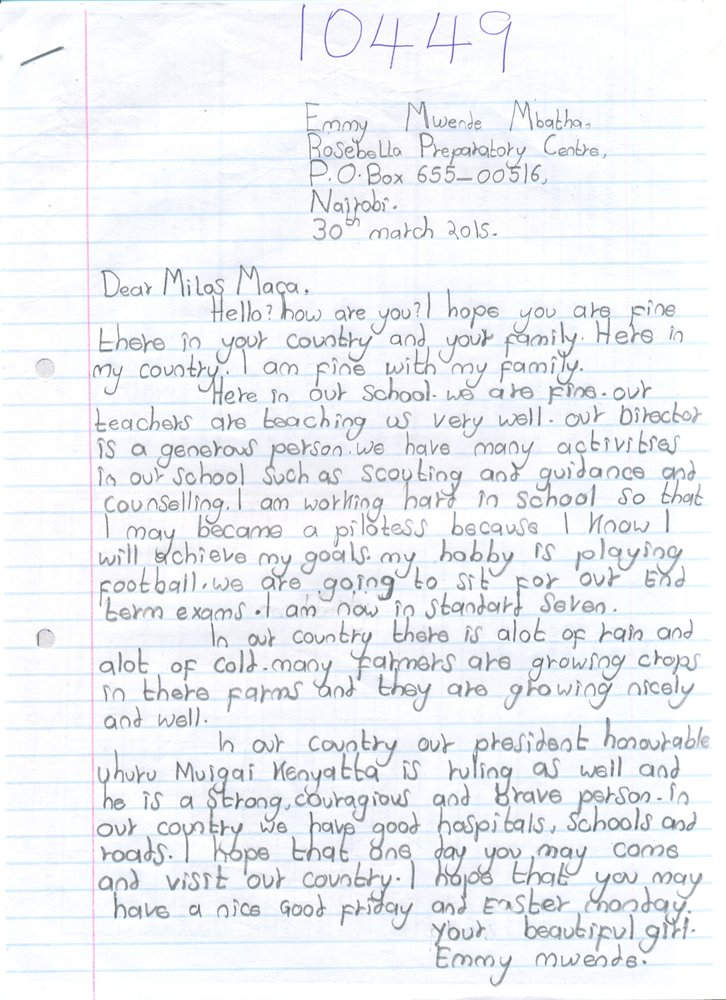 10449
Emmy Mwende Mbatha,
Rosebella Preparatory Centre,
P.O.Box 655-00516,
Nairobi.
30th march 2015.
Dear Milos Maca,
Hello? how are you? I hope you are fine
there in your country and your family. Here in
my country. I am fine with my family.
Here in our school. we are fine. our
teachers are teaching us very well. our Director
is a generous person. we have many activities
in our school such as scouting and guidance and
counselling. I am working hard in school so that
I may became a pilotess because I know I
will achieve my goals. my hobby is playing
football. we are going to sit for our End
term exams. I am now in standard seven.
In our country there is alot of rain and
alot of cold. many farmers are growing crops
in there farms and they are growing nicely
and well.
In our country our president honourable
uhuru Muigai Kenyatta is ruling as well and
he is a strong, couragious and brave person. In
our country we have good hospitals, schools and
roads. I hope that one day you may come
and visit our country. I hope that you may
have a nice Good friday and Easter monday.
your beautiful girl.
Emmy mwende.